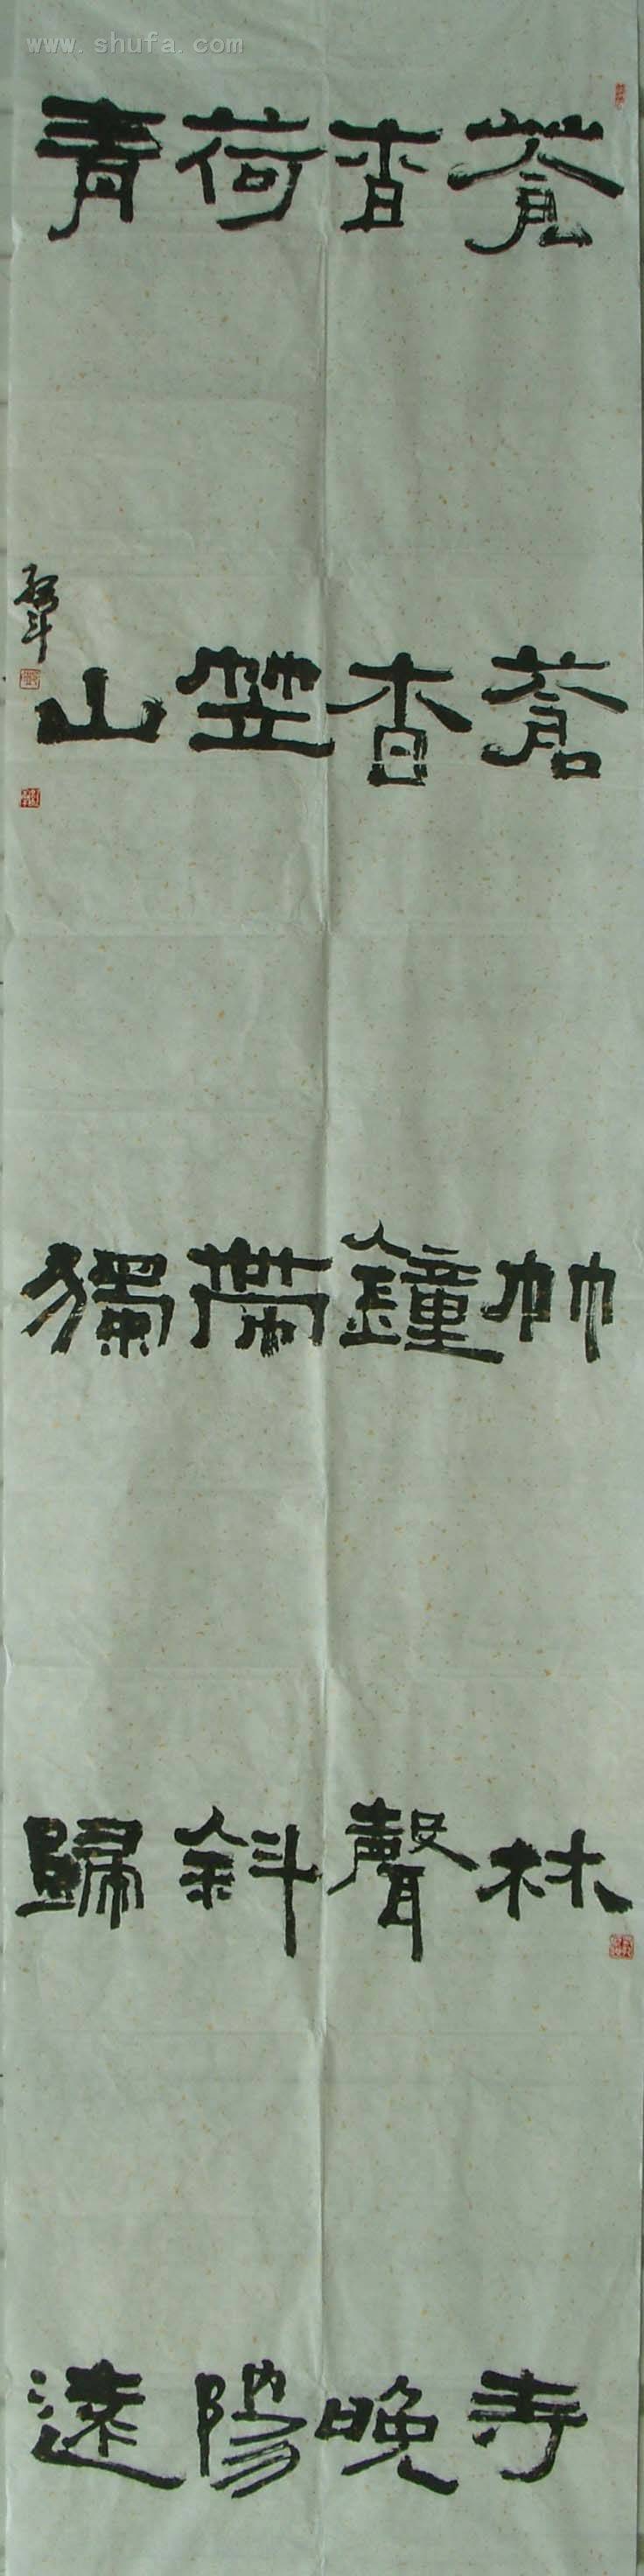 www.shufa.com
蒼蒼竹林寺
杳杳鐘聲晚
荷笠帶斜陽
青山獨歸遠